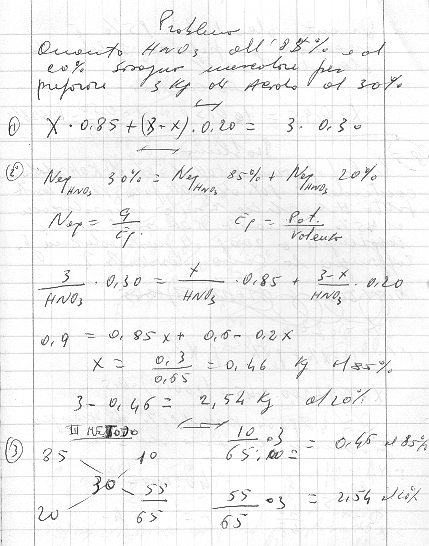 Problema
Quanto HNO3 all'85% e al
20% bisogna mescolare per
preparare 3 Kg di Acido al 30%
1) X · 0,85 + (3 - x) · 0,20 = 3 · 0,30
2) Nep HNO3 30% = Nep HNO3 85% + Nep HNO3 20%
Nep = g / Ep. Ep = Pot. / Valenza
3 / HNO3 · 0,30 = x / HNO3 · 0,85 + 3-x / HNO3 · 0,20
0,9 = 0,85x + 0,6 - 0,2x
X = 0,3 / 0,65 = 0,46 Kg al 85%
3 - 0,46 = 2,54 Kg al 20%
3) III METODO
85 10 10 / 65 · 3 = 0,46 al 85%
30
20 55 / 65 55 / 65 · 3 = 2,54 al 20%